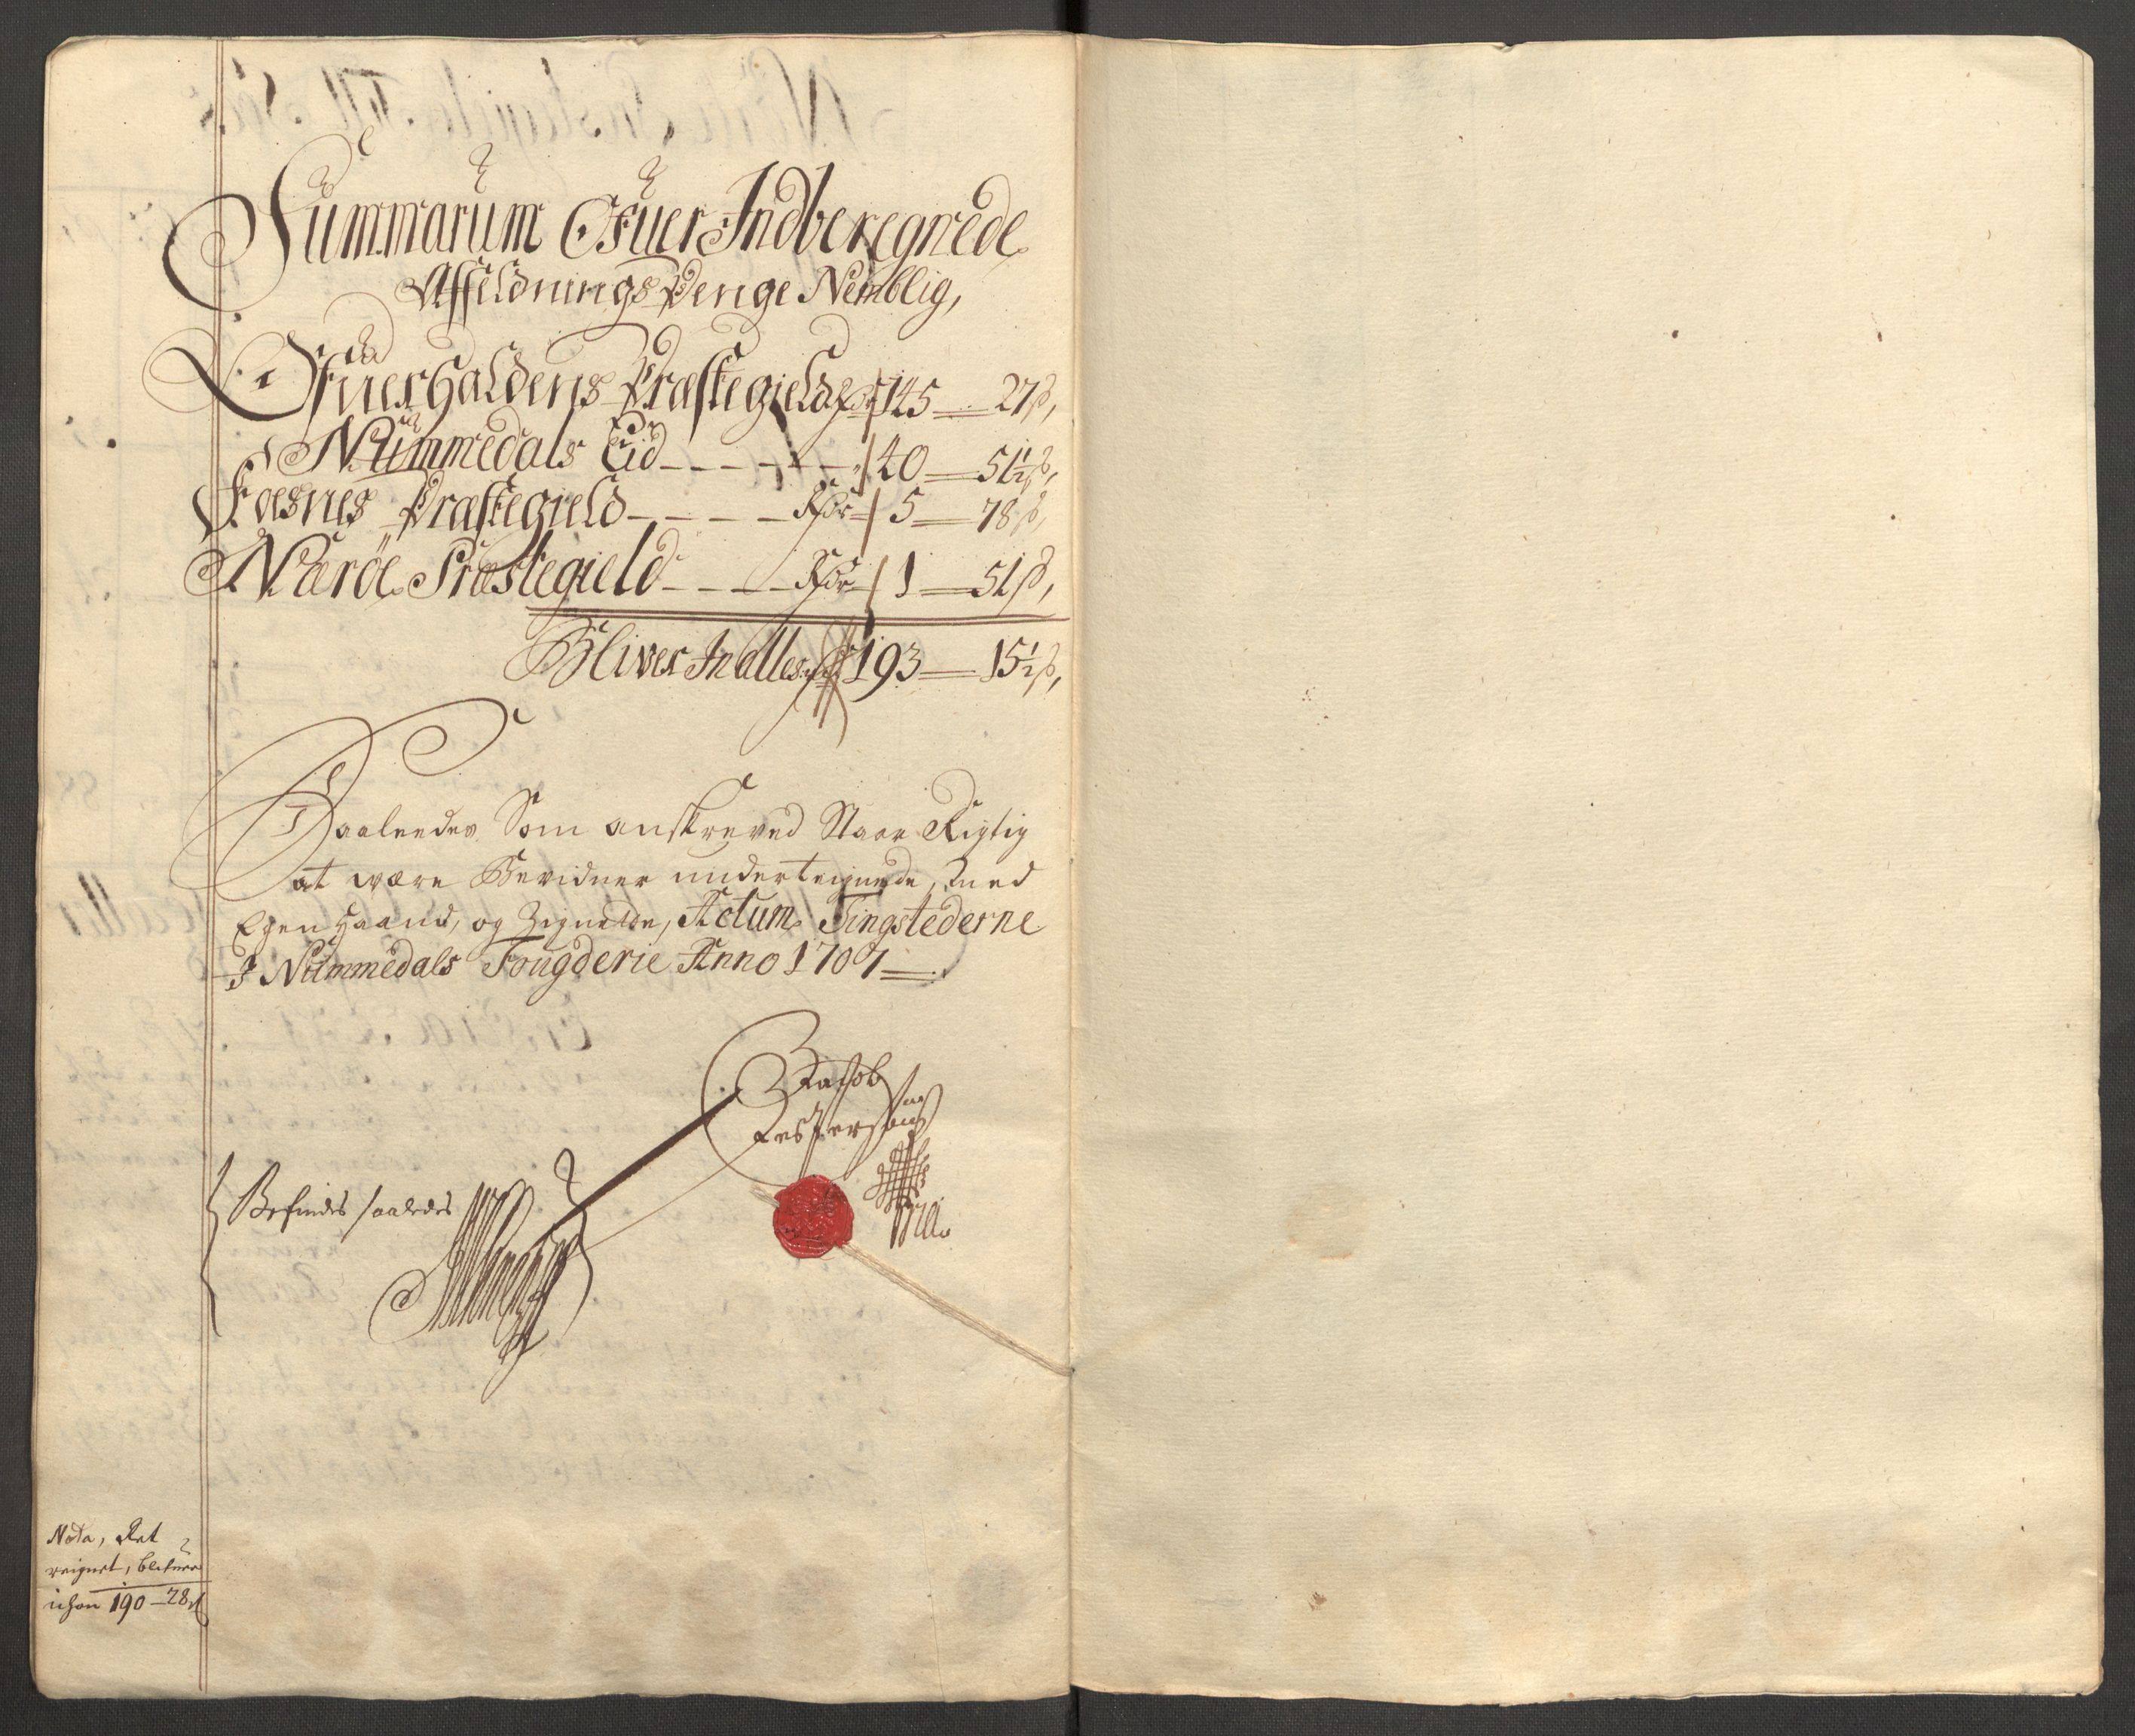 Summarum Ofuer Indberegnede
Affeldnings Penge Nemblig,
Ofuerhaldens Præstegield Rdr 145 — 27 ß,
Nummedals Eid - - - - - - 40 — 51½ ß,
Foesnes Præstegield - - - - - Rdr 5 — 78 ß,
Nærøe Præstegield - - - - Rdr 1 — 51 ß,
Bliver In alles 193 — 15½ ß,
Saaleedes Som anskreved Staar Rigtig
at være Bevidner underteignede, med
Egen Haand, og Zignette, Actum Tingstederne
I Nummedals Fougderie Anno 1707 —
Jacob
Jespersøn
Befindes saaledes
Nota, Ret
reignet, blifuer
ichon 190 — 28 ß